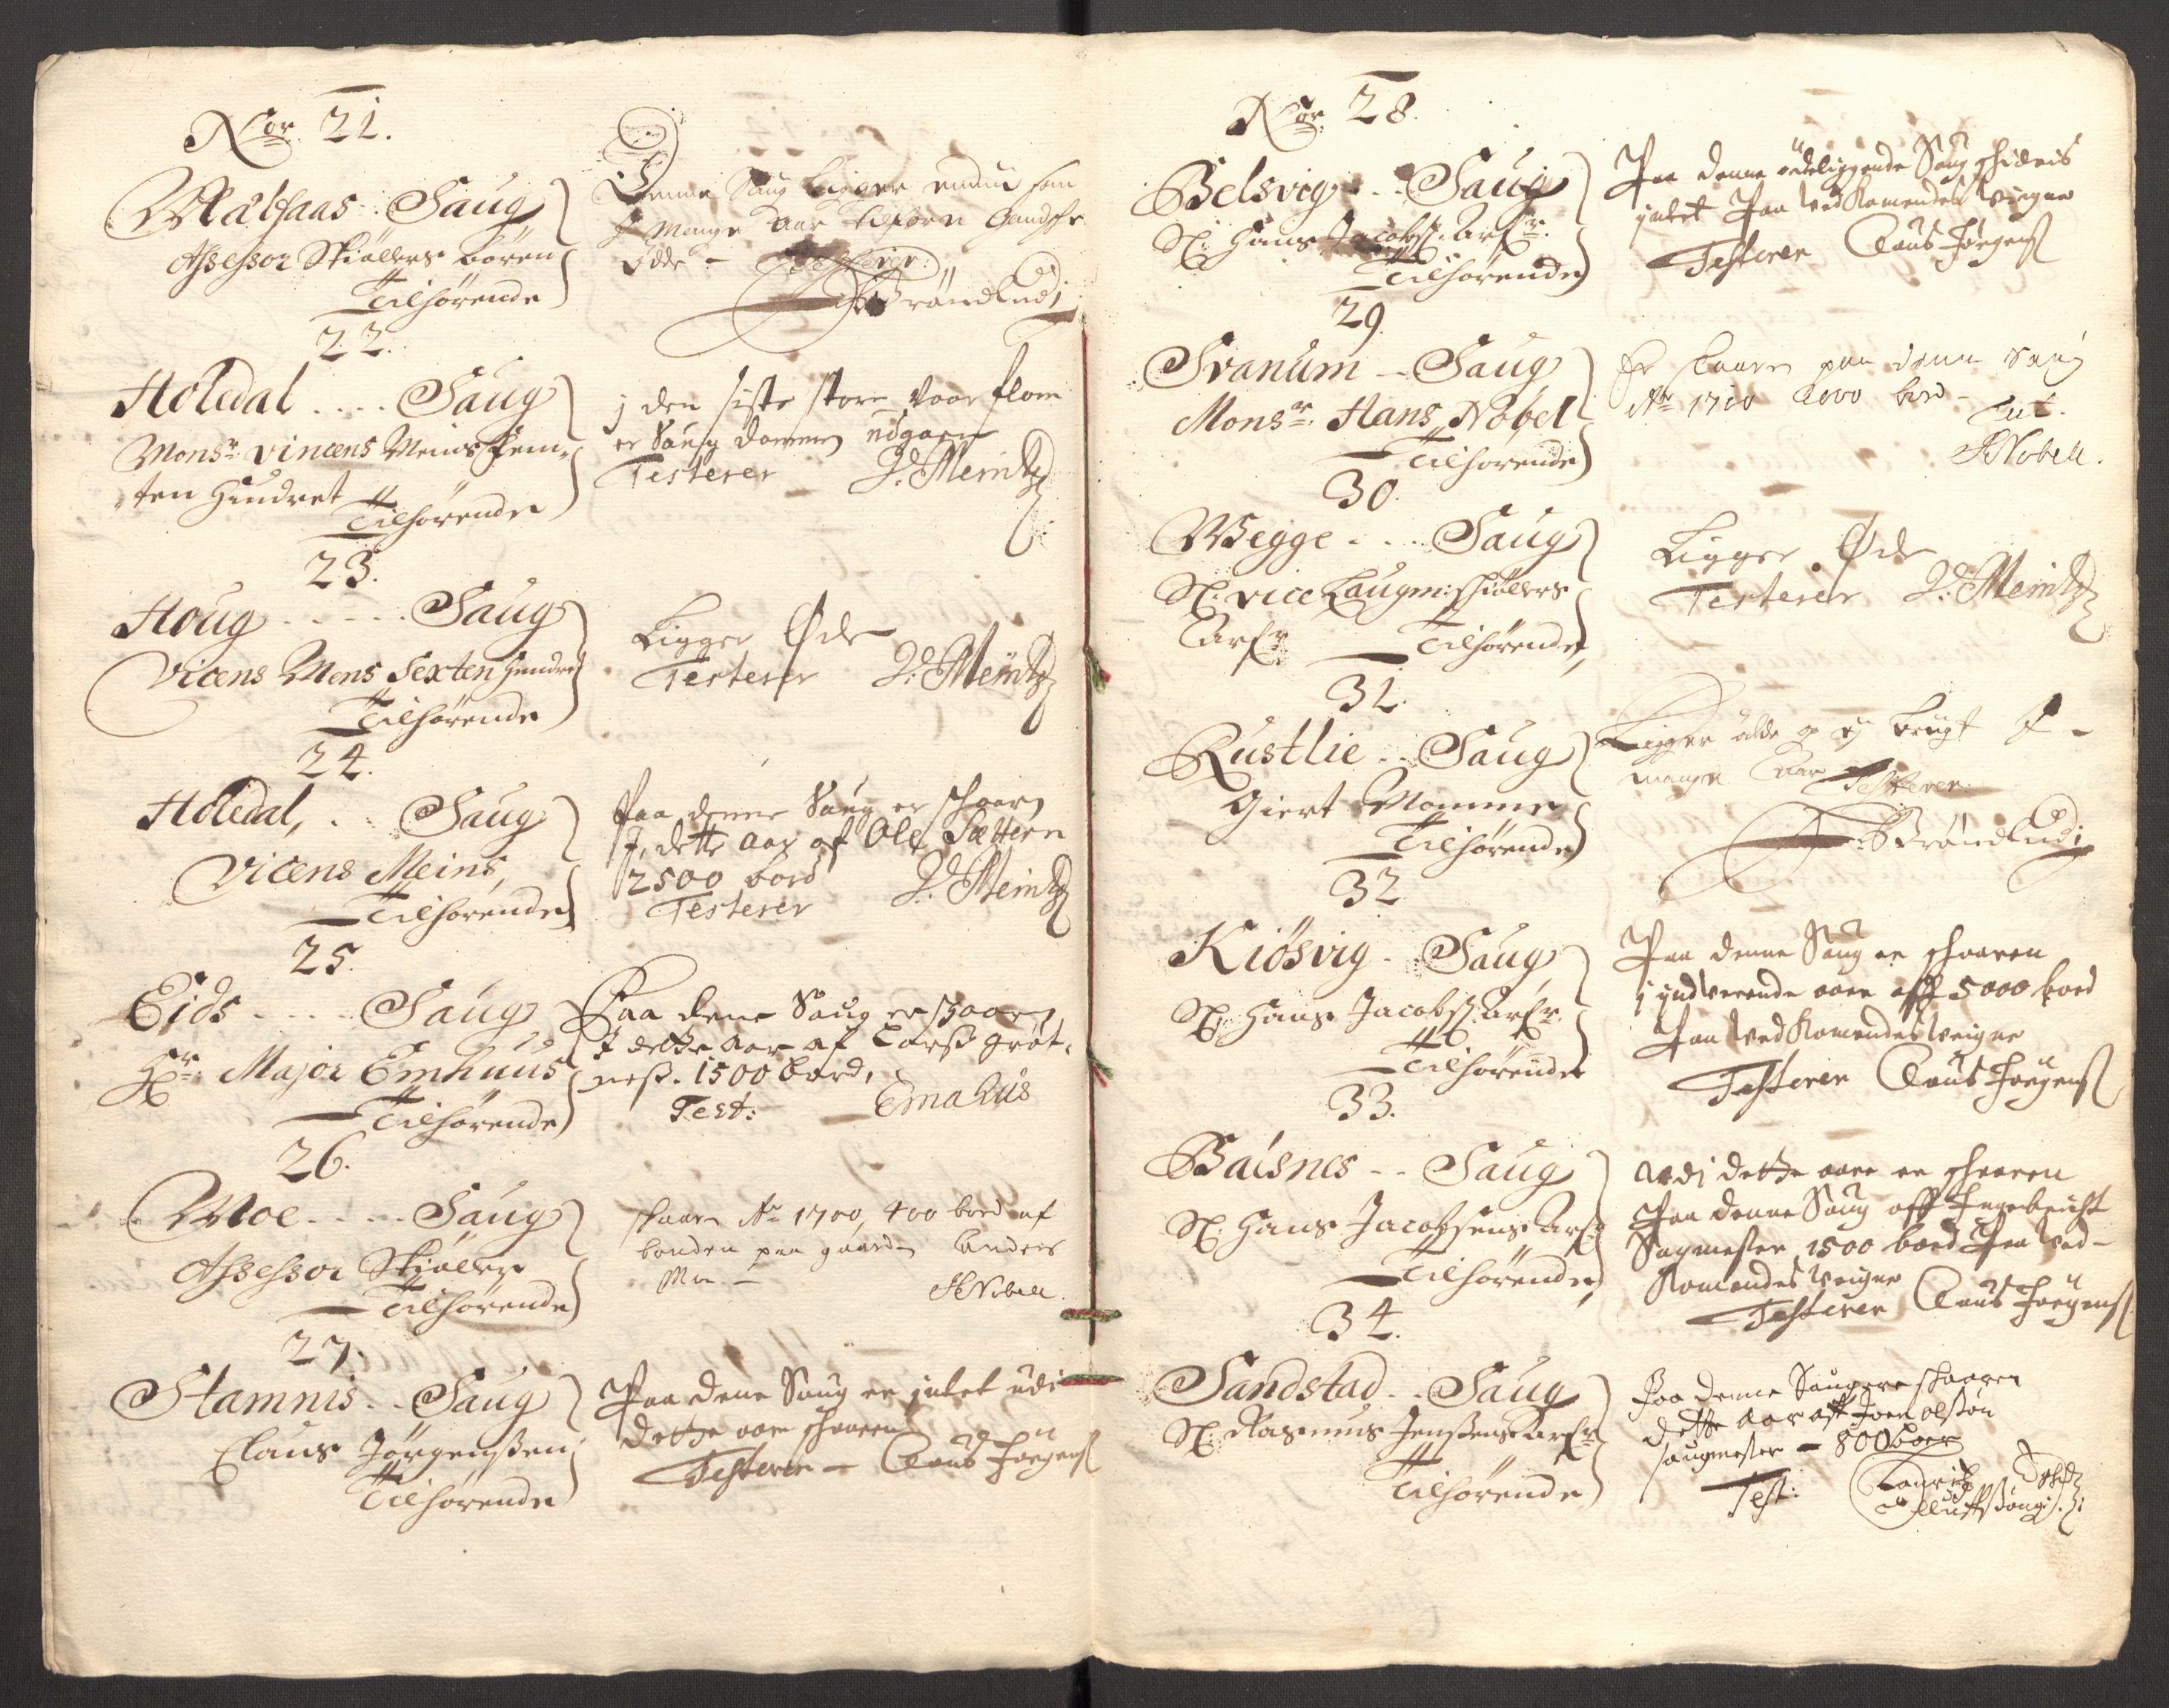 Nor. 21.
Mælfaas .. Saug
Assessor Skiøllers Børen
Tilhørende
Denne Saug Ligger endnu som
I Mange Aar tilforn Gandsche
Ødde -
22.
Holedal .... Saug
Monsr: Vincens Meins fem-
ten Hundret
Tilhørende
j den siste store Vaar flom
er Saug dammen udgaaen
Testerer V: Meintz
23.
Houg ..... Saug
Vicens Mens Sexten Hundret
Tilhørende
Ligger Øde
Testerer V: Meintz
24.
Holedal, .. Saug
Vicens Meins,
Tilhørende
Paa denne Saug er schaaren
I, dette Aar af Ole Sættern
2500 bord
Testerer V: Meintz
25.
Eids .... Saug
Hr: Major Emhuus
Tilhørende
Paa dene Saug er schaaren
I dette Aar af Larss Grøt-
ness. 1500 Bord,
Test: Emahus
26.
Moe .... Saug
Assessor Skiøller
Tilhørende
skaaren Ao 1700, 400 bord af
bonden paa gaarden Anders
Moe -
HNobell.
27.
Stamnis .. Saug
Claus Jørgenssen
Tilhørende
Paa dene Saug er intet udi
dette aar schaaren
Testerer - Claus Jørgens
Nor. 28.
Belsvig .. Saug
Sl: Hans Jacobss: Arfr:
Tilhørende
Paa denne ødeliggende Saug schieris
intet Paa VedKomendes Veigne
Testerer Claus Jørgens
29.
Svanum .. Saug
Monsr: Hans Nobel
Tilhørende
Er skaaren paa denne Saug
Ao 1700 2000 bord -
Test.
HNobell.
30.
Wegge .... Saug
Sl: Vice Laugm: Skiøllers
Arfr Tilhørende,
Ligger Øde
Testerer V: Meintz
31.
Rustlie .. Saug
Giert Momme
Tilhørende
Ligger ødde og ej brugt I -
mange Aar Testerer.
32
Kiösvig .. Saug
Sl: Hans Jacobss: Arfr.
Tilhørende
Paa denne Saug er schaaren
j indverende aare aff 5000 bord
Paa VedKomendes Veigne
Testerer Claus Jørgens
33.
Balsnes .. Saug
Sl: Hans Jacobsens Arfr
Tilhørende
Udi dette aare er schaaren
Paa denne Saug aff Ingebricht
Sagmester 1500 bord Paa Ved-
Komendes Veigne
Testerer Claus Jørgens
34.
Sandstad .. Saug
Sl: Rasmus Jenssens Arfr
Tilhørende
Paa denne Saug ere skaaren
dette Aar aff Joen olssøn
saugmester - 800 Boer
Test: